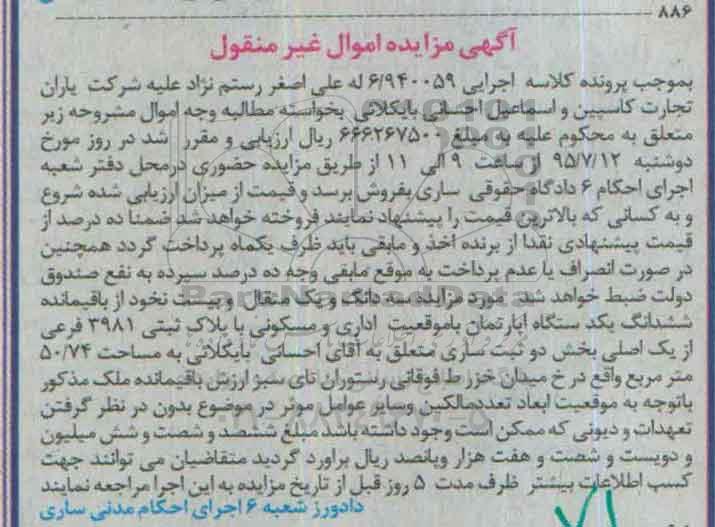 ۸۸۶
آگهی مزایده اموال غیر منقول
بموجب پرونده کلاسه اجرایی ۶/۹۴۰۰۵۹ له علی اصغر رستم نژاد علیه شرکت یاران
تجارت کاسپین و اسماعیل احسانی بایکلائی بخواسته مطالبه وجه اموال مشروحه زیر
متعلق به محکوم علیه به مبلغ ۶۶۶۲۶۷۵۰۰ ریال ارزیابی و مقرر شد در روز مورخ
دوشنبه ۹۵/۷/۱۲ از ساعت ۹ الی ۱۱ از طریق مزایده حضوری درمحل دفتر شعبه
اجرای احکام ۶ دادگاه حقوقی ساری بفروش برسد و قیمت از میزان ارزیابی شده شروع
و به کسانی که بالاترین قیمت را پیشنهاد نمایند فروخته خواهد شد ضمنا ده درصد از
قیمت پیشنهادی نقدا از برنده اخذ و مابقی باید ظرف یکماه پرداخت گردد همچنین
در صورت انصراف یا عدم پرداخت به موقع مابقی وجه ده درصد سپرده به نفع صندوق
دولت ضبط خواهد شد مورد مزایده سه دانگ و یک مثقال و بیست نخود از باقیمانده
ششدانگ یکد ستگاه اپارتمان باموقعیت اداری و مسکونی با پلاک ثبتی ۳۹۸۱ فرعی
از یک اصلی بخش دو ثبت ساری متعلق به آقای احسانی بایگلائی به مساحت ۵۰/۷۴
متر مربع واقع در خ میدان خزر ط فوقانی رستوران تای سبز ارزش باقیمانده ملک مذکور
باتوجه به موقعیت ابعاد تعددمالکین وسایر عوامل موثر در موضوع بدون در نظر گرفتن
تعهدات و دیونی که ممکن است وجود داشته باشد مبلغ ششصد و شصت و شش میلیون
و دویست و شصت و هفت هزار وپانصد ریال براورد گردید متقاضیان می توانند جهت
کسب اطلاعات بیشتر ظرف مدت ۵ روز قبل از تاریخ مزایده به این اجرا مراجعه نمایند
دادورز شعبه ۶ اجرای احکام مدنی ساری